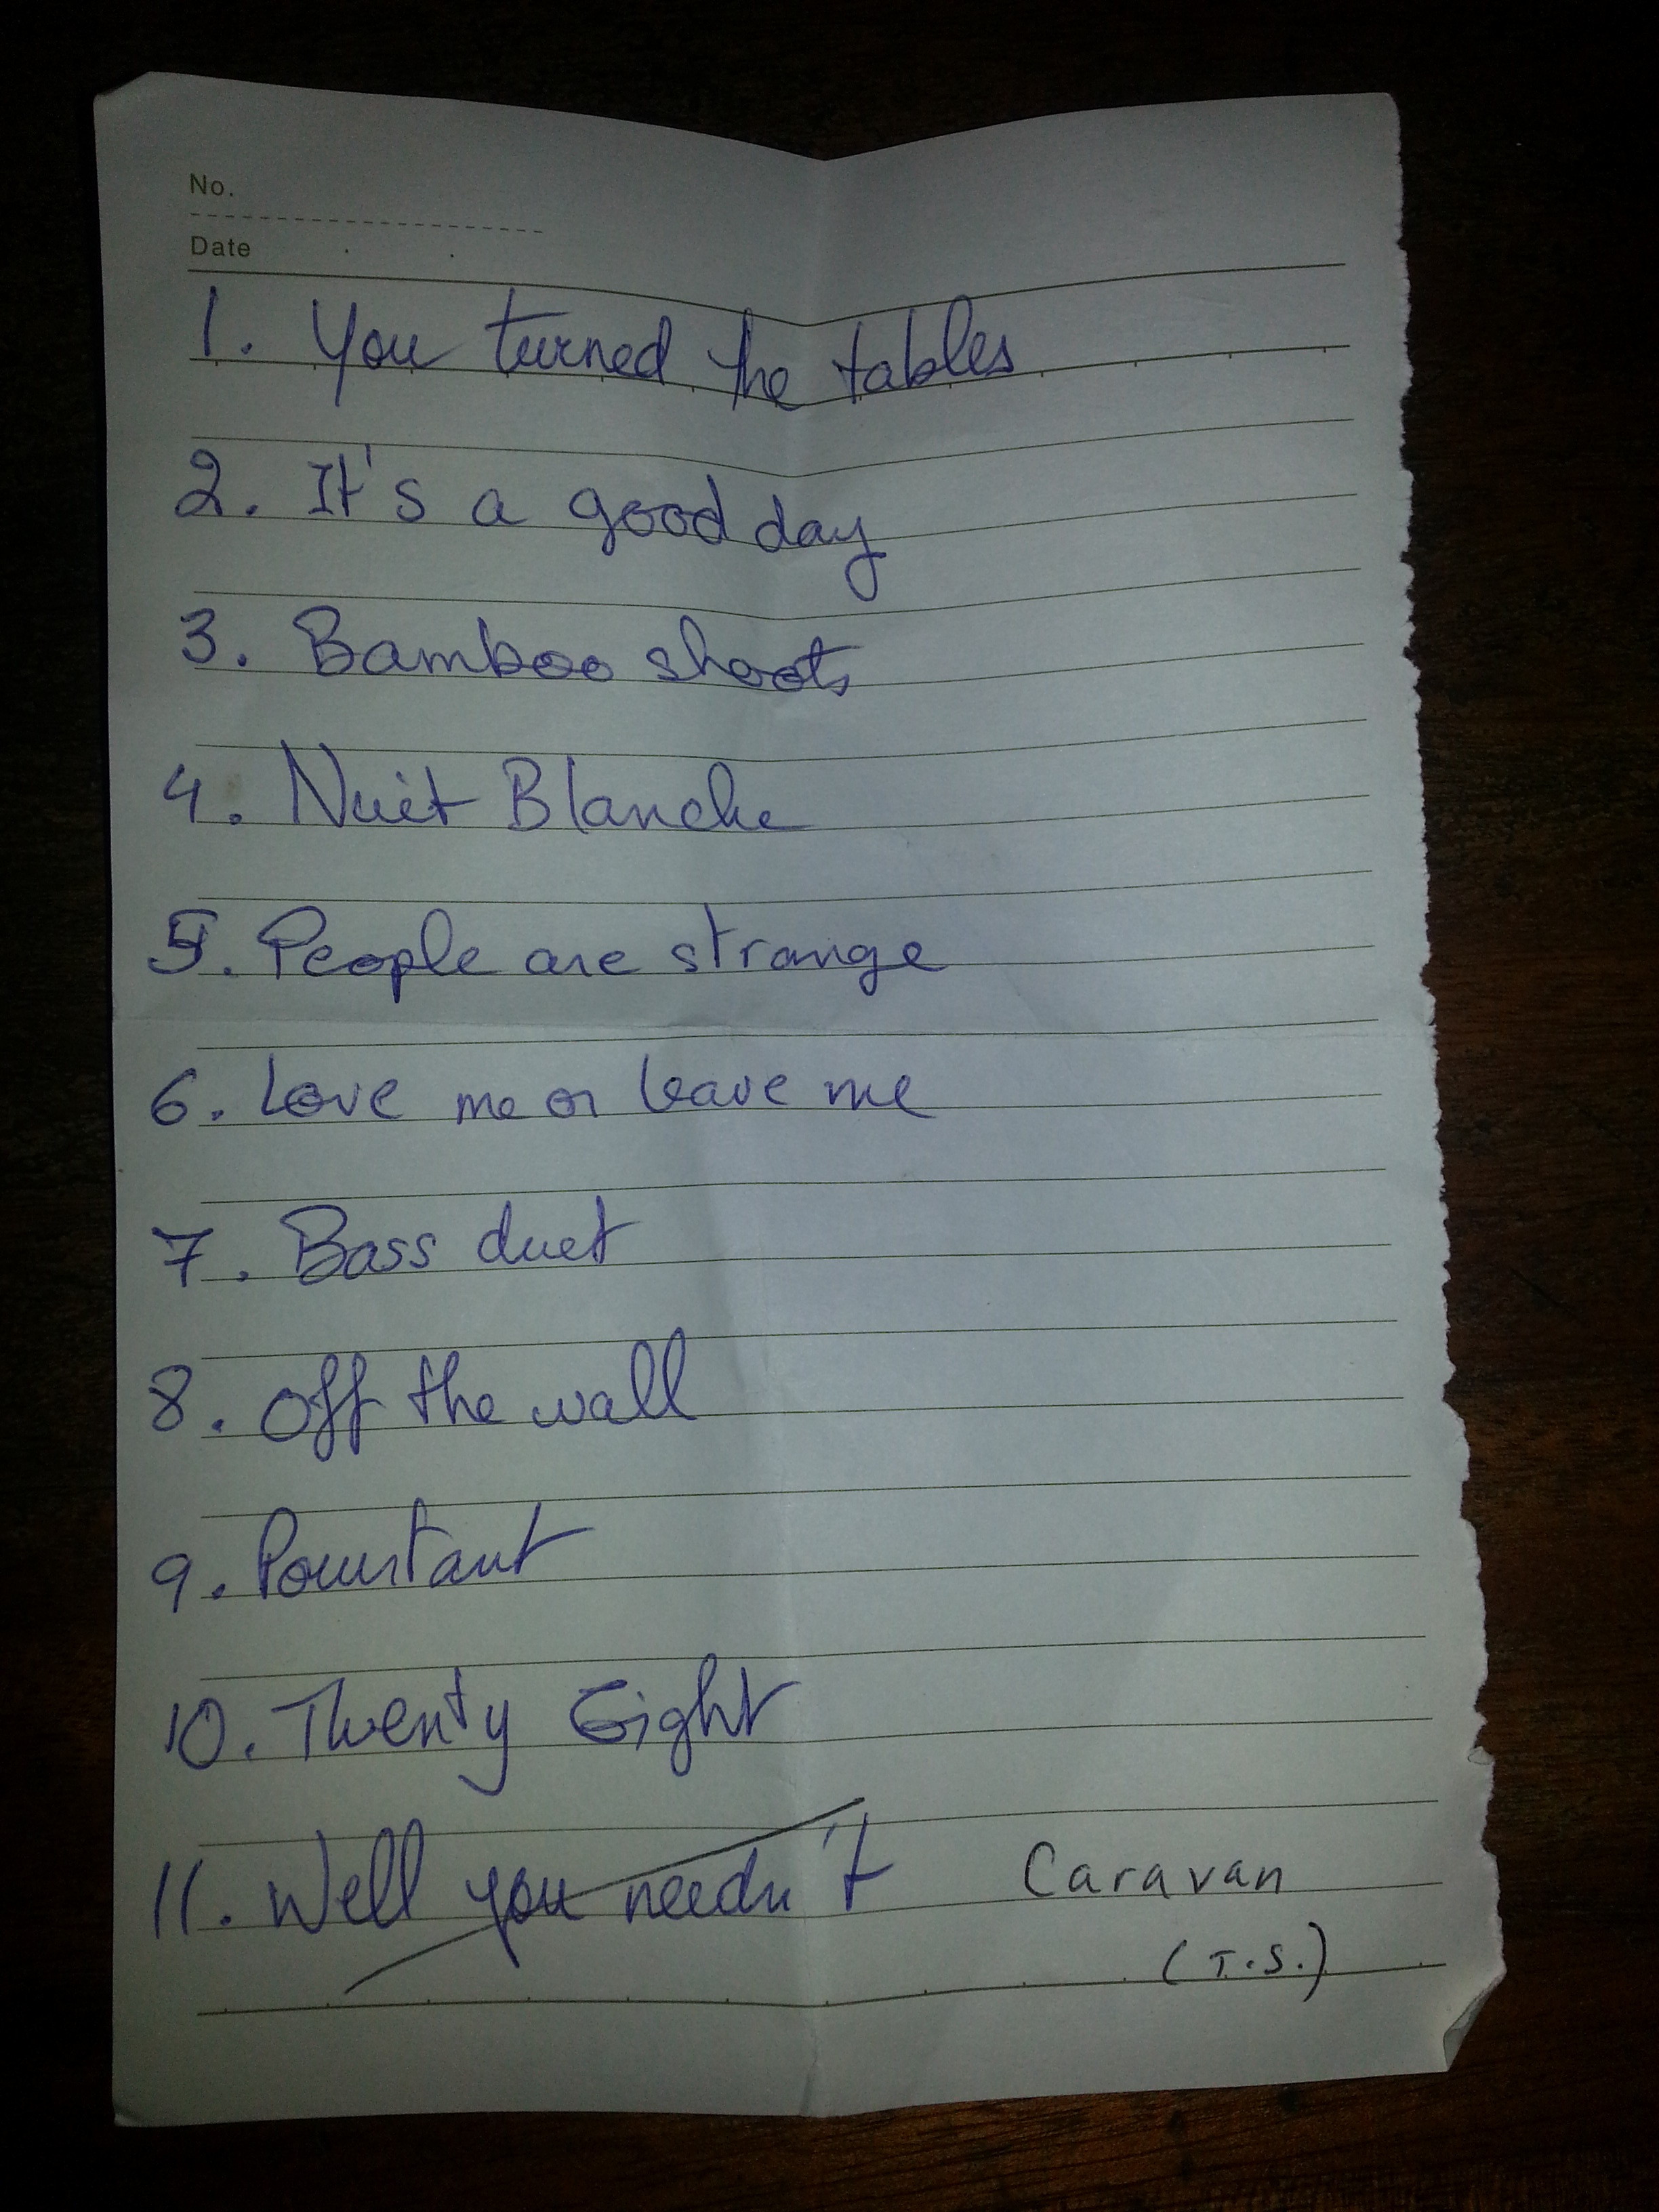 No.
Date
1. You turned the tables
2. It's a good day
3. Bamboo shoots
4. Nuit Blanche
5. People are strange
6. Love me or leave me
7. Bass duet
8. Off the wall
9. Pourtant
10. Twenty Eight
11. Well you needn't Caravan
(T.S.)